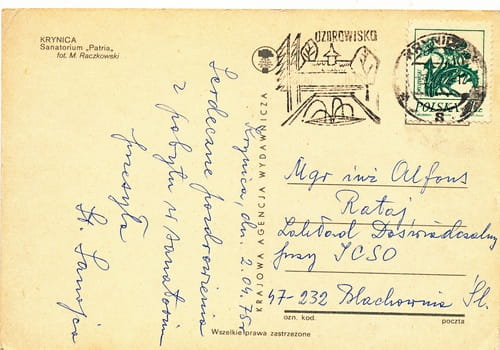 KRYNICA
Sanatorium „Patria„
fot. M. Raczkowski
UZDROWISKO
KRYNICA
POLSKA
Krynica, dn. 2.04.75r
Serdeczne pozdrowienia
z pobytu w sanatorium
przesyła
St.
KRAJOWA AGENCJA WYDAWNICZA
Mgr inż Alfons
Rataj
Zakład Doświadczalny
przy ICSO
47-232 Blachownia Śl.
ozn. kod. poczta
Wszelkie prawa zastrzeżone